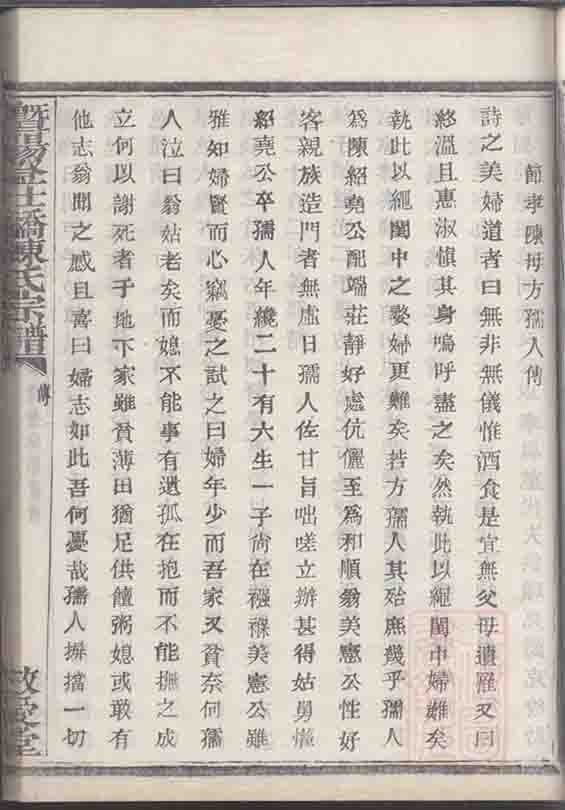 節孝陳母方孺人傳
詩之美婦道者曰無非無儀惟酒食是宜無父母遺罹又曰
終溫且惠淑愼其身嗚呼盡之矣然執此以繩閨中婦難矣
執此以繩閨中之嫠婦更難矣若方孺人其殆庶幾乎孺人
爲陳紹堯公配端莊靜好處伉儷至爲和順翁美憲公性好
客親族造門者無虛日孺人佐甘旨咄嗟立辦甚得姑舅懽
紹堯公卒孺人年纔二十有六生一子尙在襁褓美憲公雖
雅知婦賢而心竊憂之試之曰婦年少而吾家又貧奈何孺
人泣曰翁姑老矣而媳不能事有遺孤在抱而不能撫之成
立何以謝死者于地下家雖貧薄田猶足供饘粥媳或敢有
他志翁聞之感且喜曰婦志如此吾何憂哉孺人摒擋一切
暨陽金士橋陳氏宗譜
傳
敬愛堂